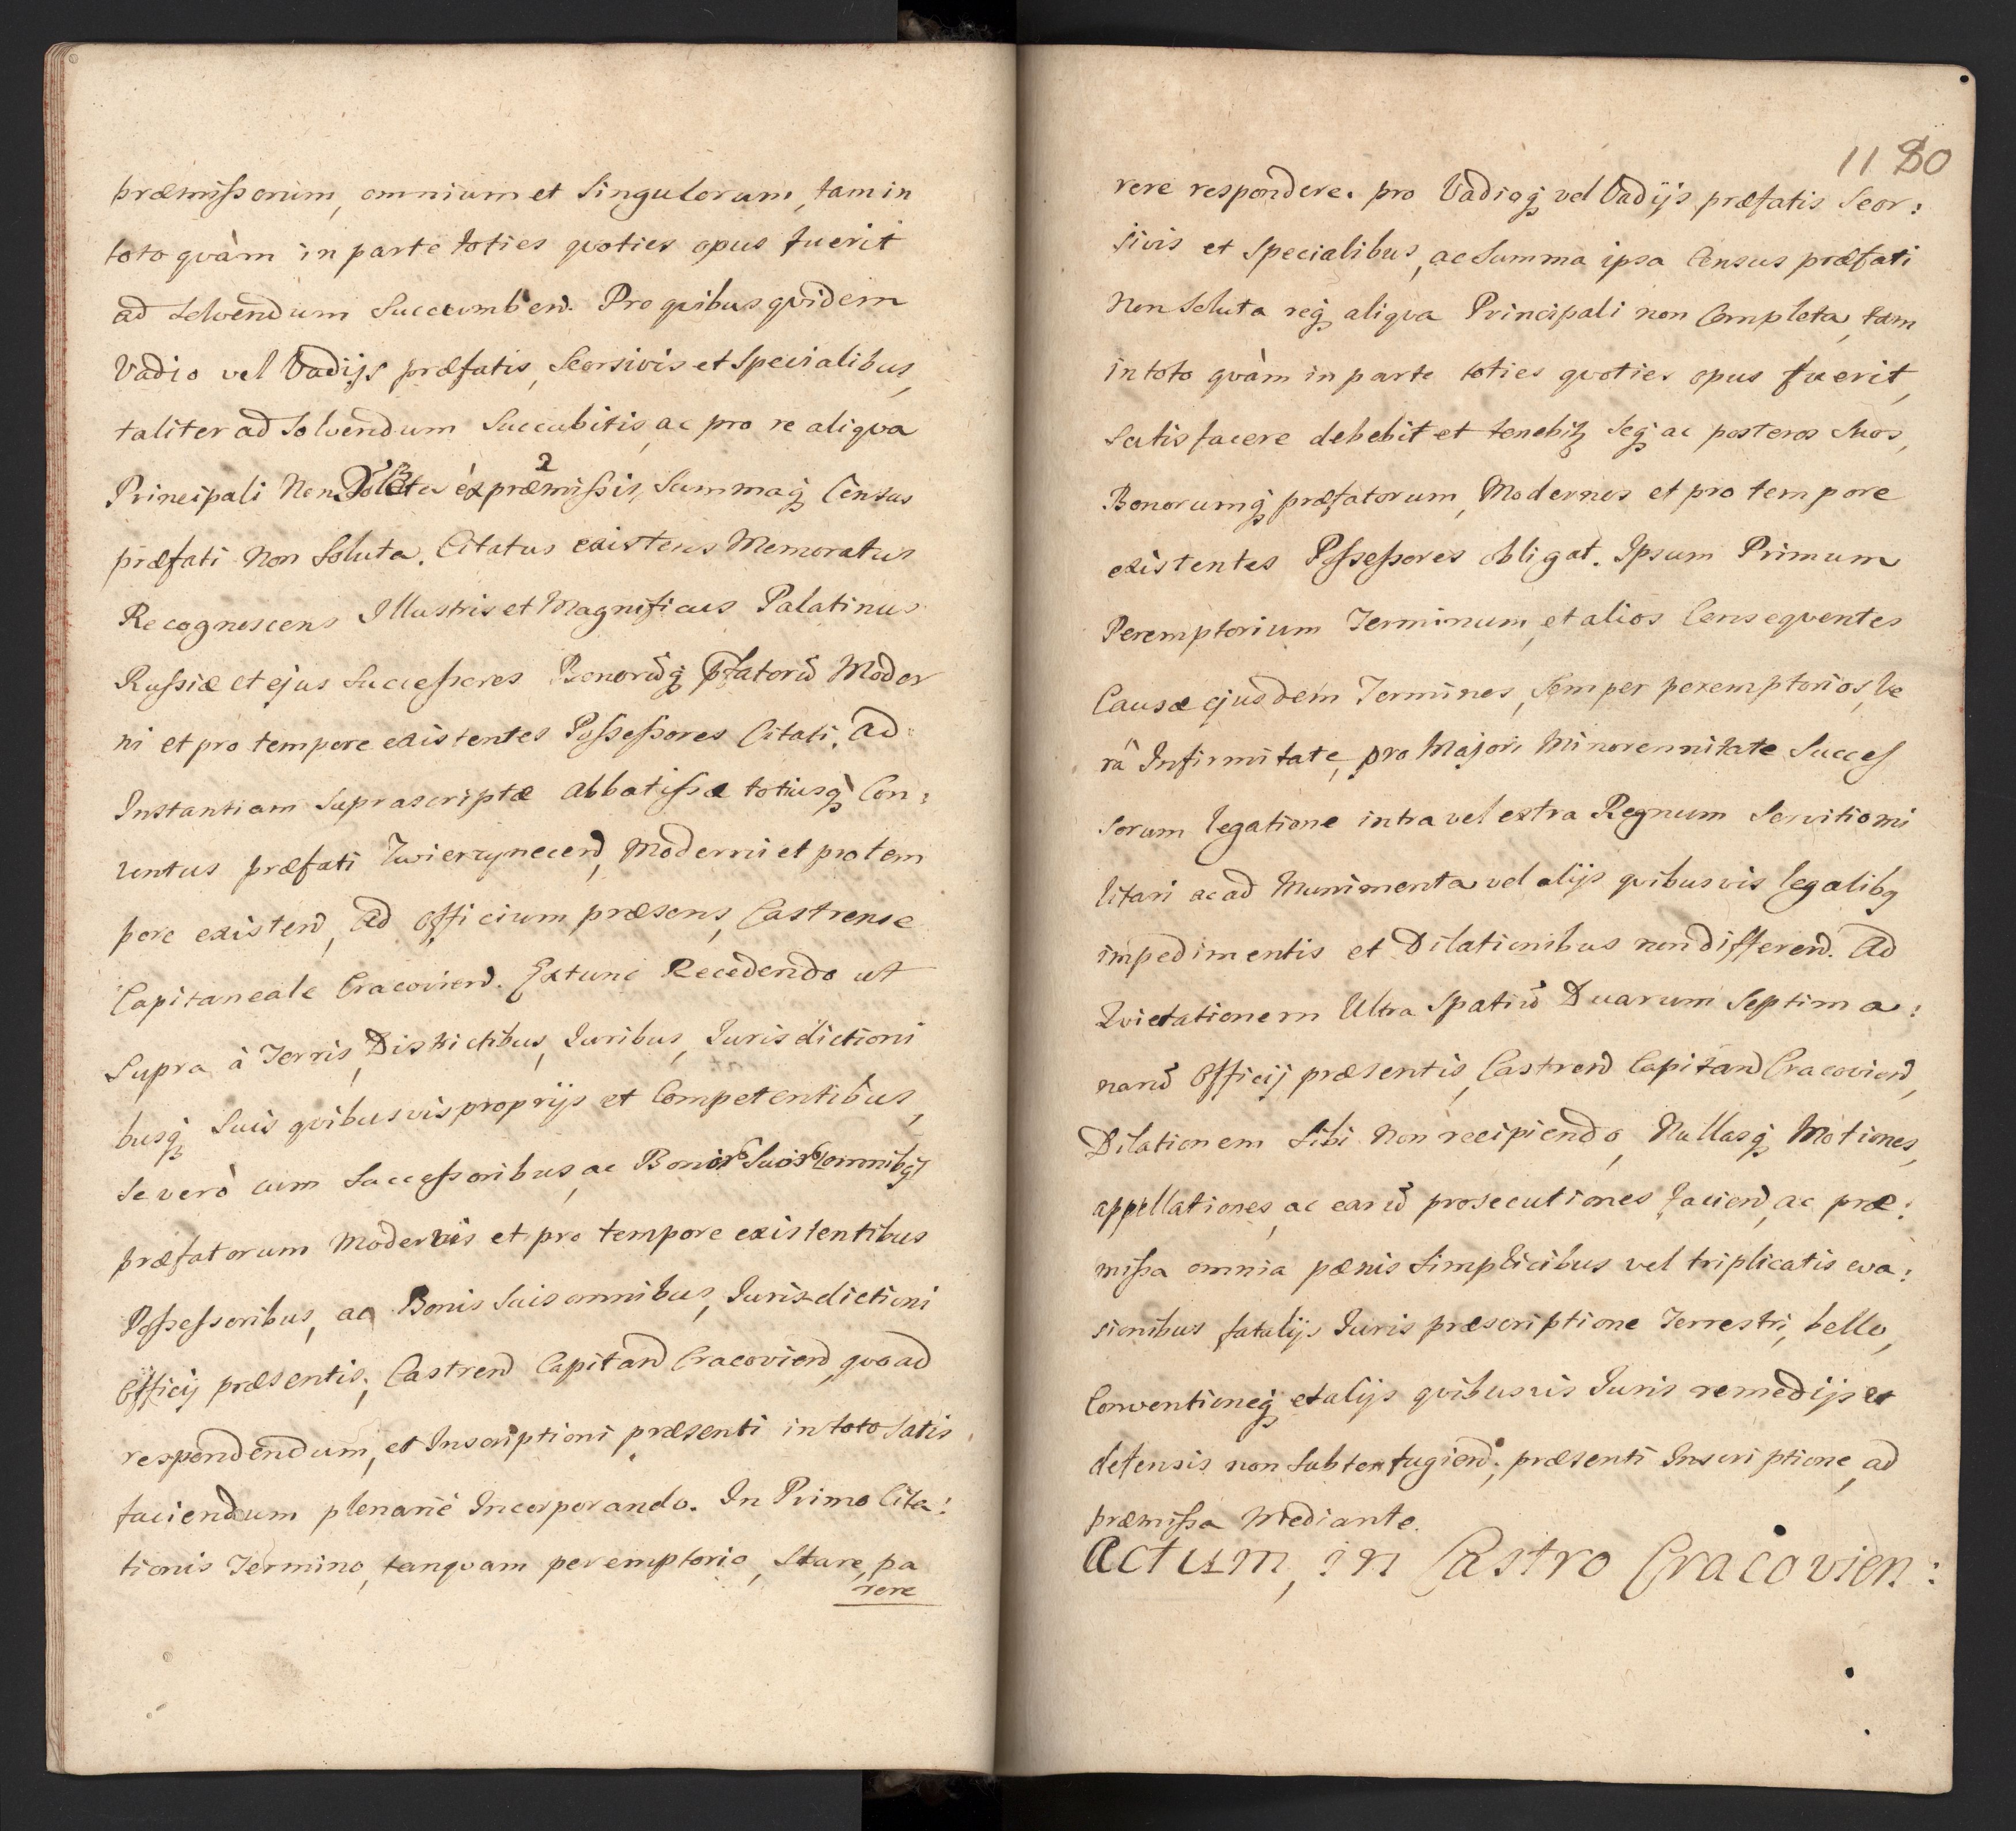 præmissorum, omnium et Singulorum, tam in
toto qvàm in parte toties qvoties opus fuerit
ad Solvendum Succumben. Pro qvibus qvidem
Vadio vel Vadijs præfatis, Seorsivis et Specialibus,
taliter ad Solvendum Succubitis, ac pro re aliqva
Principali Non ex præmissis, Summaq Census
præfati Non Soluta. Citatus existens Memoratus
Recognoscens Illustris et Magnificus Palatinus
Russiæ et ejus Successores Bonorũq pfatorũ Moder
ni et pro tempore existentes Possessores Citati. Ad
Instantiam Suprascriptæ Abbatissæ totiusq Con:
ventus præfati Zwierzynecen, Moderni et pro tem
pore existen, ad Officium præsens, Castrense
Capitaneale Cracovien. Extunc Recedendo ut
Supra à Terris, Districtibus, Iuribus, Iurisdictioni
busq Suis qvibusvis proprijs et Competentibus,
Se verò cum Successoribus, ac Bonor Suor omnibq
præfatorum Modernis et pro tempore existentibus
Possessoribus, ac Bonis Suis omnibus, Iurisdictioni
Officij præsentis, Castren Capitan Cracovien, qvo ad
respondendum, et Inscriptioni præsenti in toto Satis
faciendum plenariè Incorporando. In Primo Cita:
tionis Termino, tanqvam peremptorio, Stare, pa
rere
11 80
rere respondere. pro Vadioq vel Vadijs præfatis Seor:
sivis et Specialibus, ac Summa ipsa Census præfati
Non Soluta req aliqva Principali non Completa, tam
in toto qvàm in parte toties qvoties opus fuerit,
Satisfacere debebit et tenebit Seq ac posteros Suos,
Bonorumq præfatorum, Modernos et pro tempore
existentes Possessores obligat. Ipsum Primum
Peremptorium Terminum, et alios Conseqventes
Causæ ejusdem Terminos, Semper peremptorios, Ve
râ Infirmitate, pro Majori Minorennitate Succes
sorum legatione intra vel extra Regnum Servitio mi
litari ac ad Munimenta vel alijs qvibusvis legalibq
impedimentis et Dilationibus non differen. Ad
Qvietationem Ultra Spatiũ Duarum Septima:
narũ Officij præsentis, Castren Capitan Cracovien,
Dilationem Sibi Non recipiendo, Nullasq Motiones,
appellationes, ac earũ prosecutiones facien, ac præ:
missa omnia pænis Simplicibus vel triplicatis eva:
sionibus fatalijs Iuris præscriptione Terrestri, bello,
Conventioneq et alijs qvibusvis Iuris remedijs et
defensis non Subterfugien. præsenti Inscriptione, ad
præmissa Mediante.
Actum, in Castro Cracovien: